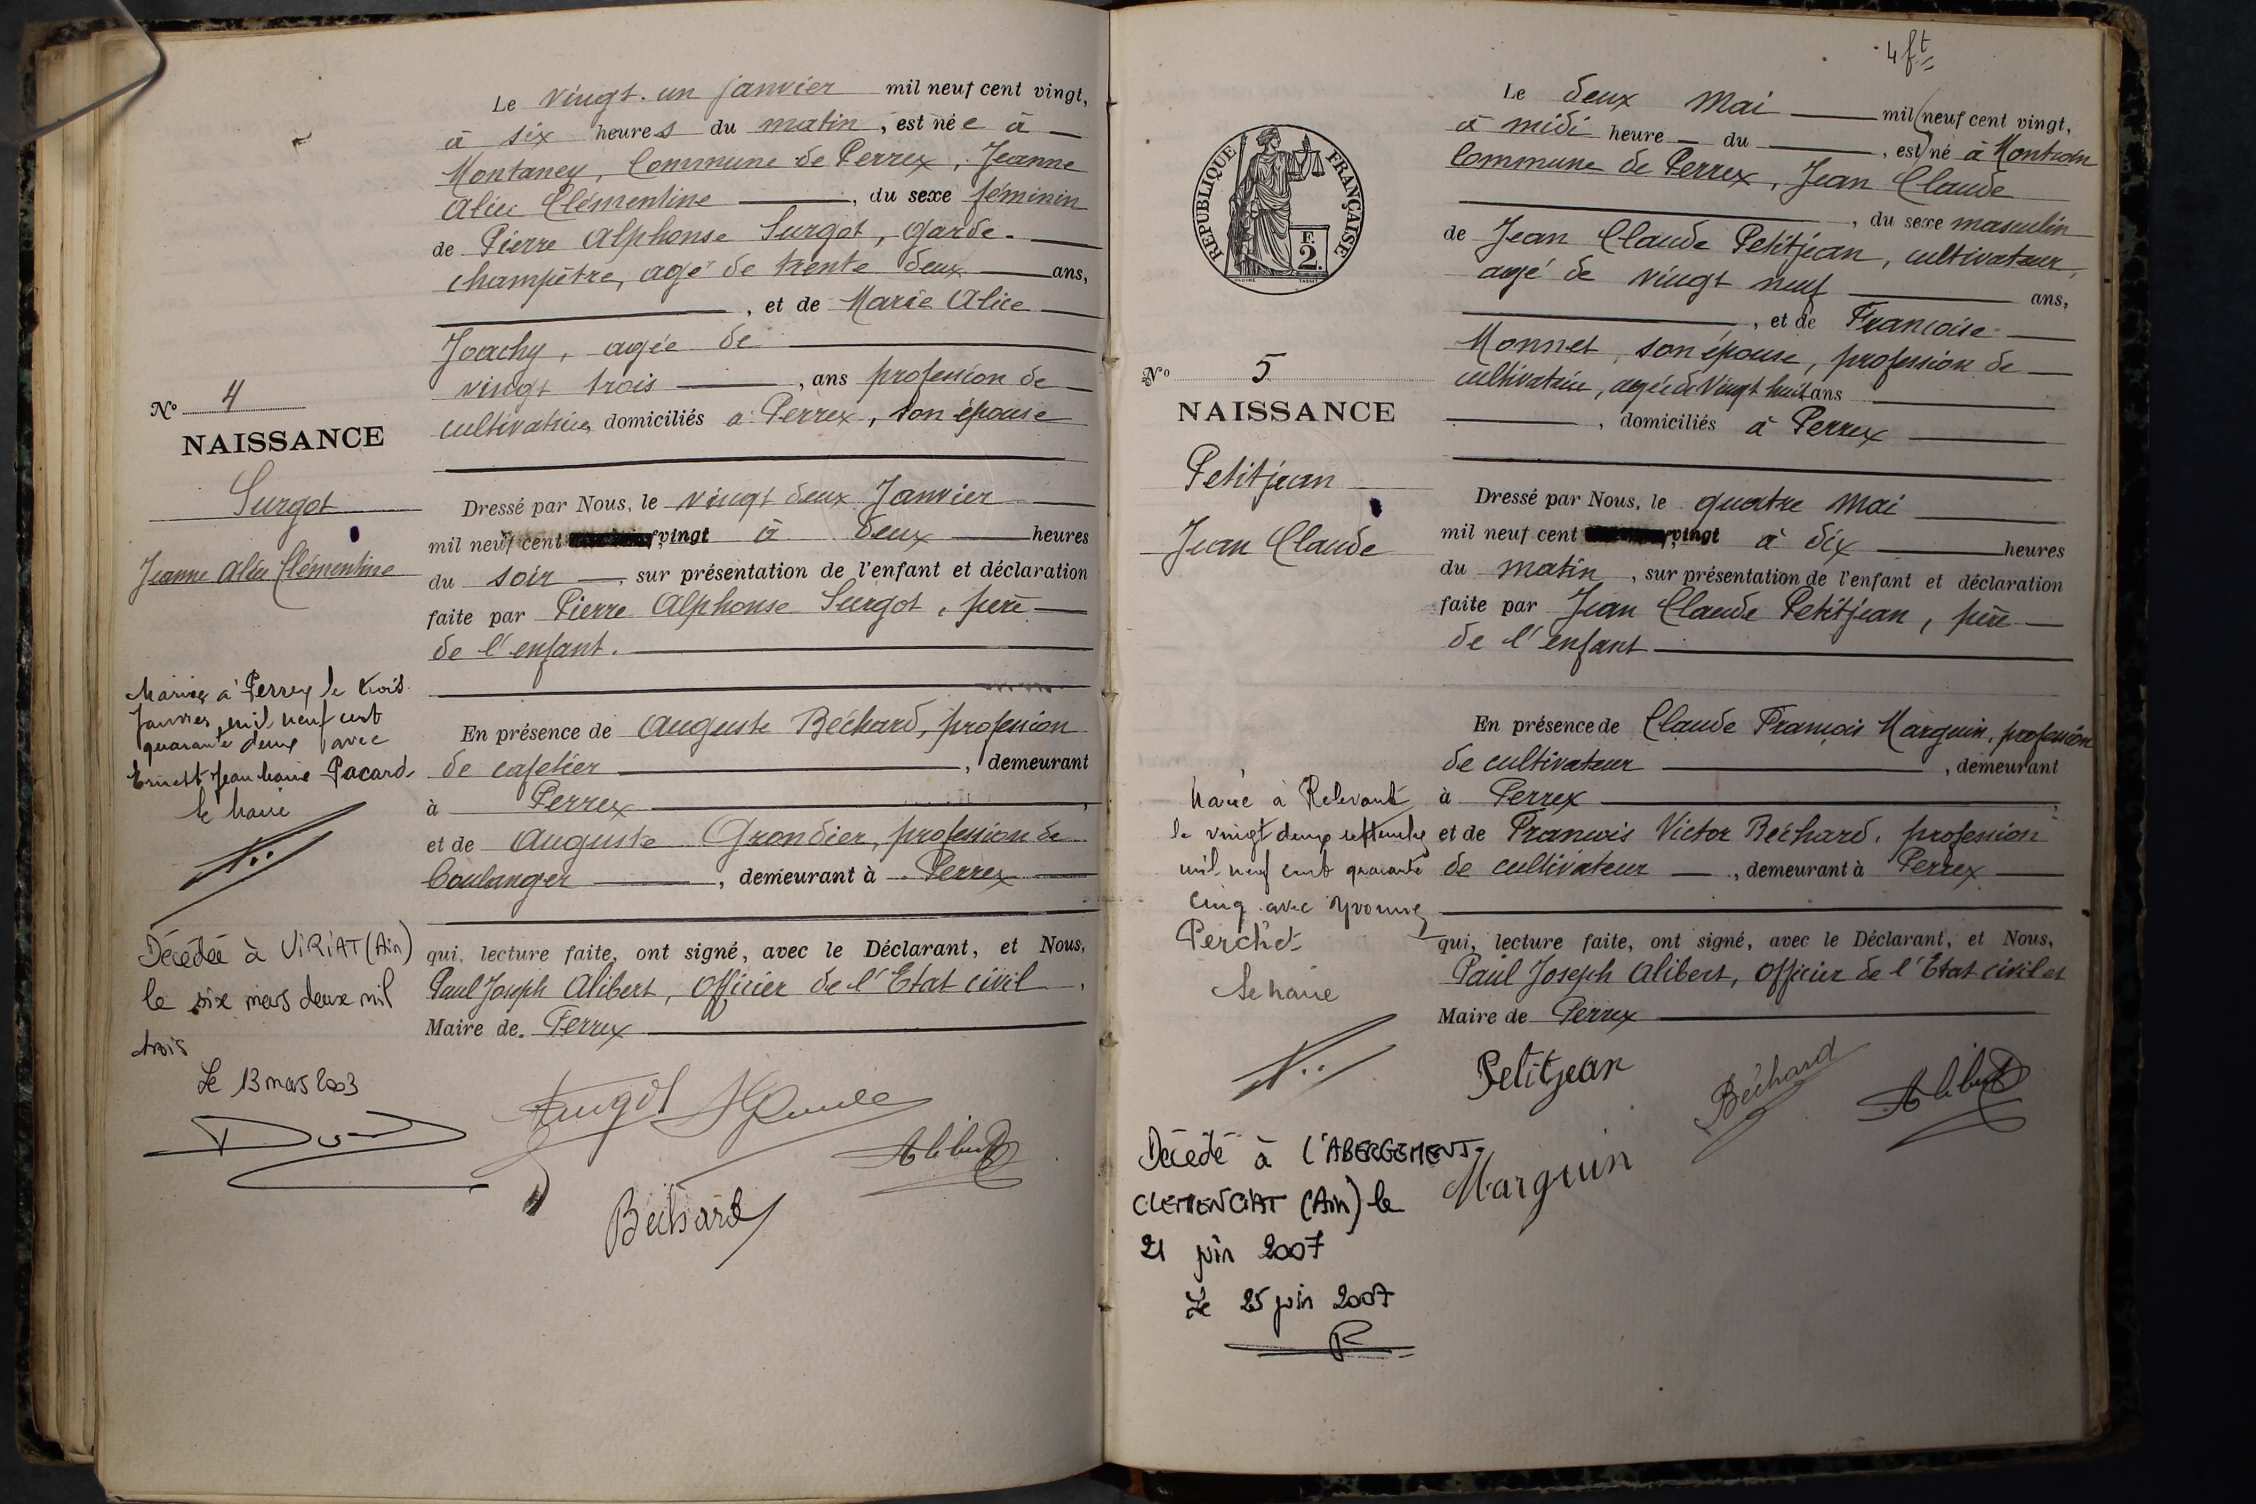 Le vingt-un janvier mil neuf cent vingt,
à six heures du matin, est née à
Montaney, Commune de Perrex, Jeanne
Alice Clémentine, du sexe féminin
de Pierre Alphonse Surgot, garde-
champêtre, agé de trente deux ans,
, et de Marie Alice
Joachy, agée de
vingt trois, ans profession de
cultivatrice, domiciliés à Perrex, son épouse
No 4
NAISSANCE
Surgot
Jeanne Alice Clémentine
Dressé par Nous, le vingt deux Janvier
mil neuf cent vingt à deux heures
du soir, sur présentation de l'enfant et déclaration
faite par Pierre Alphonse Surgot, père
de l'enfant.
Mariée à Perrex le trois
Janvier mil neuf cent
quarante deux avec
Ernest Jean Marie Pacard.
le Maire
En présence de Auguste Béchard, profession
de cafetier, demeurant
à Perrex,
et de Auguste Grondier, profession de
boulanger, demeurant à Perrex
qui, lecture faite, ont signé, avec le Déclarant, et Nous,
Paul Joseph Alibert, Officier de l'Etat civil,
Maire de Perrex
Décédée à VIRIAT (Ain)
le six mars deux mil
trois
Le 13 mars 2003
Surgot
Alibert
Béchard
4 ft
Le deux Mai mil neuf cent vingt,
à midi heure du, est né à
Commune de Perrex, Jean Claude
, du sexe masculin
de Jean Claude Petitjean, cultivateur,
agé de vingt neuf ans,
, et de Francoise
Monnet, son épouse, profession de
cultivatrice, agée de Vingt huit ans
, domiciliés à Perrex
RÉPUBLIQUE FRANÇAISE
F.
2.
No 5
NAISSANCE
Petitjean
Jean Claude
Dressé par Nous, le quatre Mai
mil neuf cent vingt à dix heures
du matin, sur présentation de l'enfant et déclaration
faite par Jean Claude Petitjean, père
de l'enfant
En présence de Claude François Marguin, profession
de cultivateur, demeurant
à Perrex,
et de Francois Victor Béchard, profession
de cultivateur, demeurant à Perrex
qui, lecture faite, ont signé, avec le Déclarant, et Nous,
Paul Joseph Alibert, Officier de l'Etat civil et
Maire de Perrex
Marié à Relevant
le vingt deux septembre
mil neuf cent quarante
cinq avec Yvonne
Perchet
le Maire
Petitjean
Béchard
Alibert
Marguin
Décédé à L'ABERGEMENT-
CLEMENCIAT (Ain) le
21 juin 2007
Le 25 juin 2007